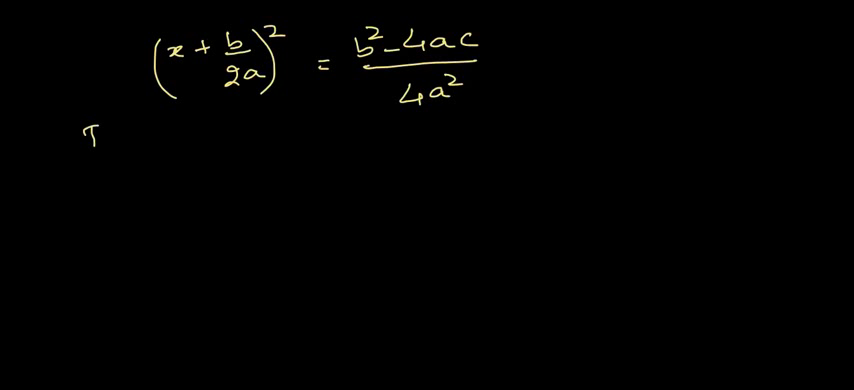 (x + b/2a)² = b² - 4ac / 4a²
T